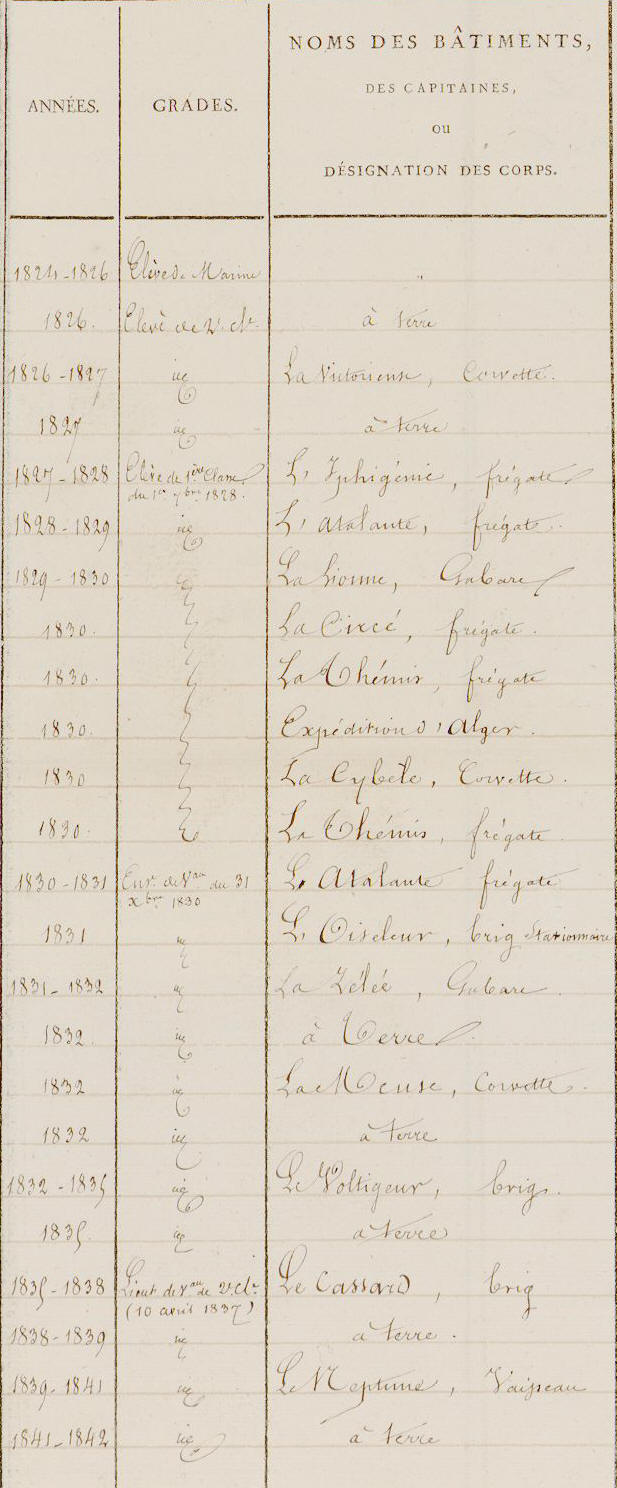 ANNÉES. GRADES. NOMS DES BÂTIMENTS,
DES CAPITAINES,
OU
DÉSIGNATION DES CORPS.
1824-1826 Elève de Marine "
1826. Elevè de 2e. clse. à terre
1826-1827 id La Victorieuse, Corvette.
1827 id à terre
1827-1828 Elève de 1ère Classe L'Iphigénie, frégate
du 1er 7bre 1828.
1828-1829 id L'atalante, frégate.
1829-1830 La Lionne, Gabare
1830. La Circé, frégate.
1830. La Thémis, frégate
1830. Expédition d'Alger.
1830 La Cybèle, Corvette.
1830. La Thémis, frégate
1830-1831 Ense. de Vau du 31 L'Atalante frégate
xbre 1830
1831 id L'Oiseleur, brig Stationnaire
1831-1832 id La Zélée, Gabare.
1832. id à Terre.
1832 id La Meuse, Corvette.
1832 id à terre
1832-1835 id Le Voltigeur, brig.
1835. id à terre
1835-1838 Lieut de Vau de 2e Cle Le Cassard, brig
(10 avril 1837)
1838-1839 id à terre.
1839-1841 id Le Neptune, Vaisseau
1841-1842 id à terre